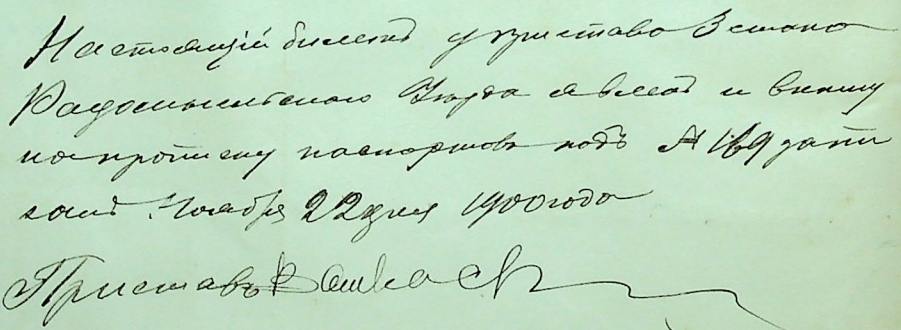 Настоящій билетъ у пристава 3 стана
Радомысльскаго Уѣзда явленъ и въ книгу
паспортовъ подъ № 169 запи
санъ Ноября 22 дня 1900 года
Приставъ